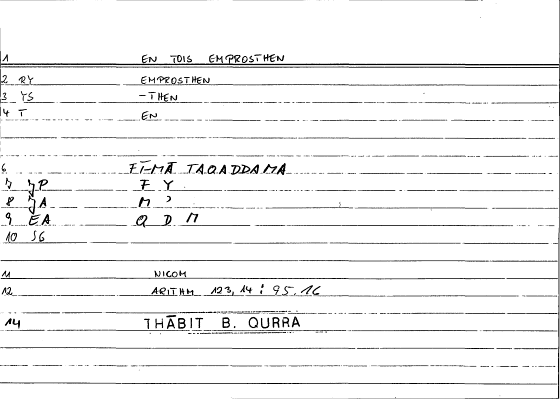 1 EN TOIS EMPROSTHEN
2 RY EMPROSTHEN
3 YS -THEN
4 T EN
6 FĪ-MĀ TAQADDAMA
7 JP F Y
8 JA M ʾ
9 EA Q D M
10 SG
11 NICOM
12 ARITHM 123,14 : 95.16
14 THĀBIT B. QURRA